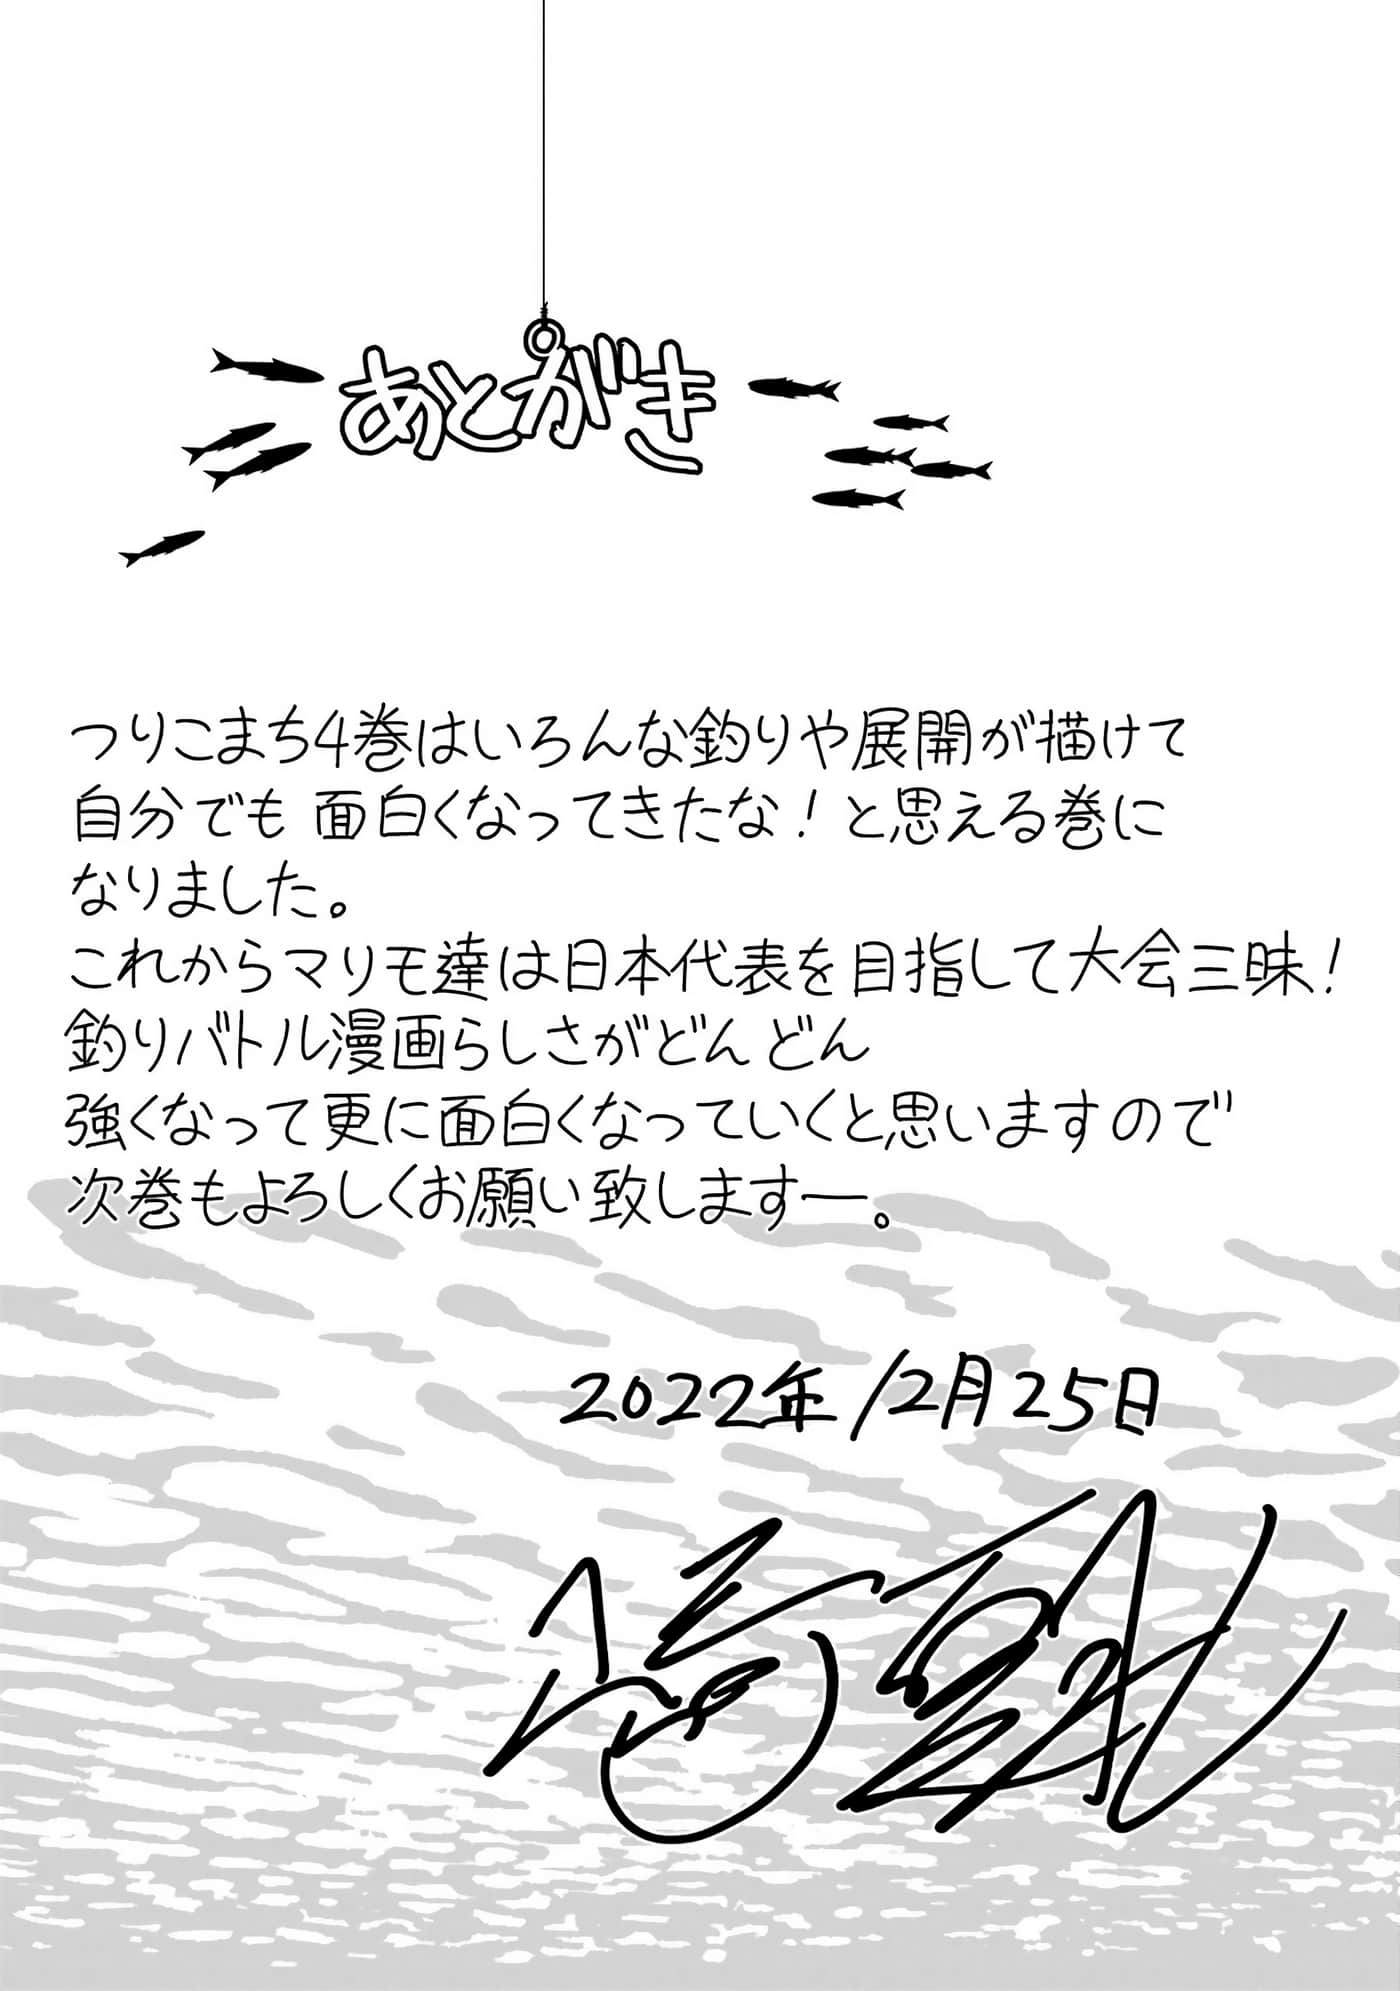 あとがき
つりこまち4巻はいろんな釣りや展開が描けて
自分でも 面白くなってきたな！と思える巻に
なりました。
これからマリモ達は日本代表を目指して大会三昧！
釣りバトル漫画らしさがどんどん
強くなって更に面白くなっていくと思いますので
次巻もよろしくお願い致しますー。
2022年12月25日